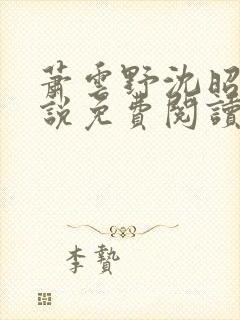 蕭雲野沈昭
說免費閱讀
李贄